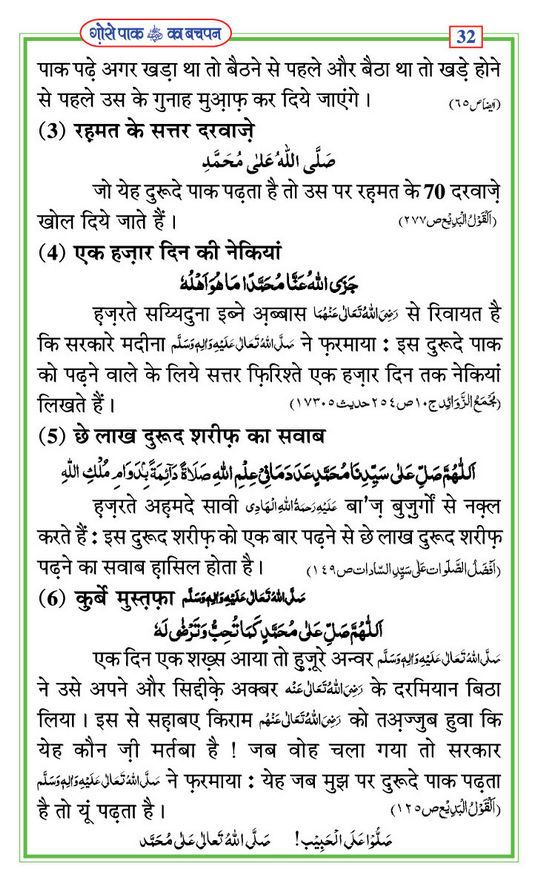 ग़ौसे पाक ﷺ का बचपन 32
पाक पढ़े अगर खड़ा था तो बैठने से पहले और बैठा था तो खड़े होने
से पहले उस के गुनाह मुआ़फ़ कर दिये जाएंगे । (ایضاص٦٥)
(3) रह़मत के सत्तर दरवाजे़
صَلَّى اللّٰهُ عَلٰى مُحَمَّدٍ
जो येह दुरूदे पाक पढ़ता है तो उस पर रह़मत के 70 दरवाजे़
खोल दिये जाते हैं । (اَلْقَوْلُ الْبَدِيْع ص٢٧٧)
(4) एक हज़ार दिन की नेकियां
جَزَى اللّٰهُ عَنَّا مُحَمَّدًا مَا هُوَ اَهْلُهٗ
ह़ज़रते सय्यिदुना इब्ने अ़ब्बास رَضِیَ اللّٰهُ تَعَالٰی عَنْهُمَا से रिवायत है
कि सरकारे मदीना صَلَّى اللّٰهُ تَعَالٰى عَلَيْهِ وَاٰلِهٖ وَسَلَّم ने फ़रमाया : इस दुरूदे पाक
को पढ़ने वाले के लिये सत्तर फ़िरिश्ते एक हज़ार दिन तक नेकियां
लिखते हैं । (مَجْمَعُ الزَّوَائِد ج١٠ ص٢٥٤ حديث ١٧٣٠٥)
(5) छे लाख दुरूद शरीफ़ का सवाब
اَللّٰهُمَّ صَلِّ عَلٰى سَيِّدِنَا مُحَمَّدٍ عَدَدَ مَا فِيْ عِلْمِ اللّٰهِ صَلَاةً دَآئِمَةً ۢ بِدَوَامِ مُلْكِ اللّٰهِ
ह़ज़रते अह़मदे सावी عَلَيْهِ رَحمَةُ اللّٰهِ الْهَادِى बा'ज़ बुज़ुर्गों से नक़्ल
करते हैं : इस दुरूद शरीफ़ को एक बार पढ़ने से छे लाख दुरूद शरीफ़
पढ़ने का सवाब ह़ासिल होता है । (اَفضَلُ الصَّلَوات عَلٰى سَيِّدِ السّادات ص١٤٩)
(6) कु़र्बे मुस्त़फ़ा صَلَّى اللّٰهُ تَعَالٰى عَلَيْهِ وَاٰلِهٖ وَسَلَّم
اَللّٰهُمَّ صَلِّ عَلٰى مُحَمَّدٍ كَمَا تُحِبُّ وَتَرْضٰى لَهٗ
एक दिन एक शख़्स आया तो हुज़ूरे अन्वर صَلَّى اللّٰهُ تَعَالٰى عَلَيْهِ وَاٰلِهٖ وَسَلَّم
ने उसे अपने और सिद्दीक़े अक्बर رَضِیَ اللّٰهُ تَعَالٰی عَنْهُ के दरमियान बिठा
लिया । इस से सह़ाबए किराम رَضِیَ اللّٰهُ تَعَالٰی عَنْهُم को तअ़ज्जुब हुवा कि
येह कौन ज़ी मर्तबा है ! जब वोह चला गया तो सरकार
صَلَّى اللّٰهُ تَعَالٰى عَلَيْهِ وَاٰلِهٖ وَسَلَّم ने फ़रमाया : येह जब मुझ पर दुरूदे पाक पढ़ता
है तो यूं पढ़ता है । (اَلْقَوْلُ الْبَدِيْع ص١٢٥)
صَلُّوْا عَلَى الْحَبِيْب! صَلَّى اللّٰهُ تَعَالٰى عَلٰى مُحَمَّد